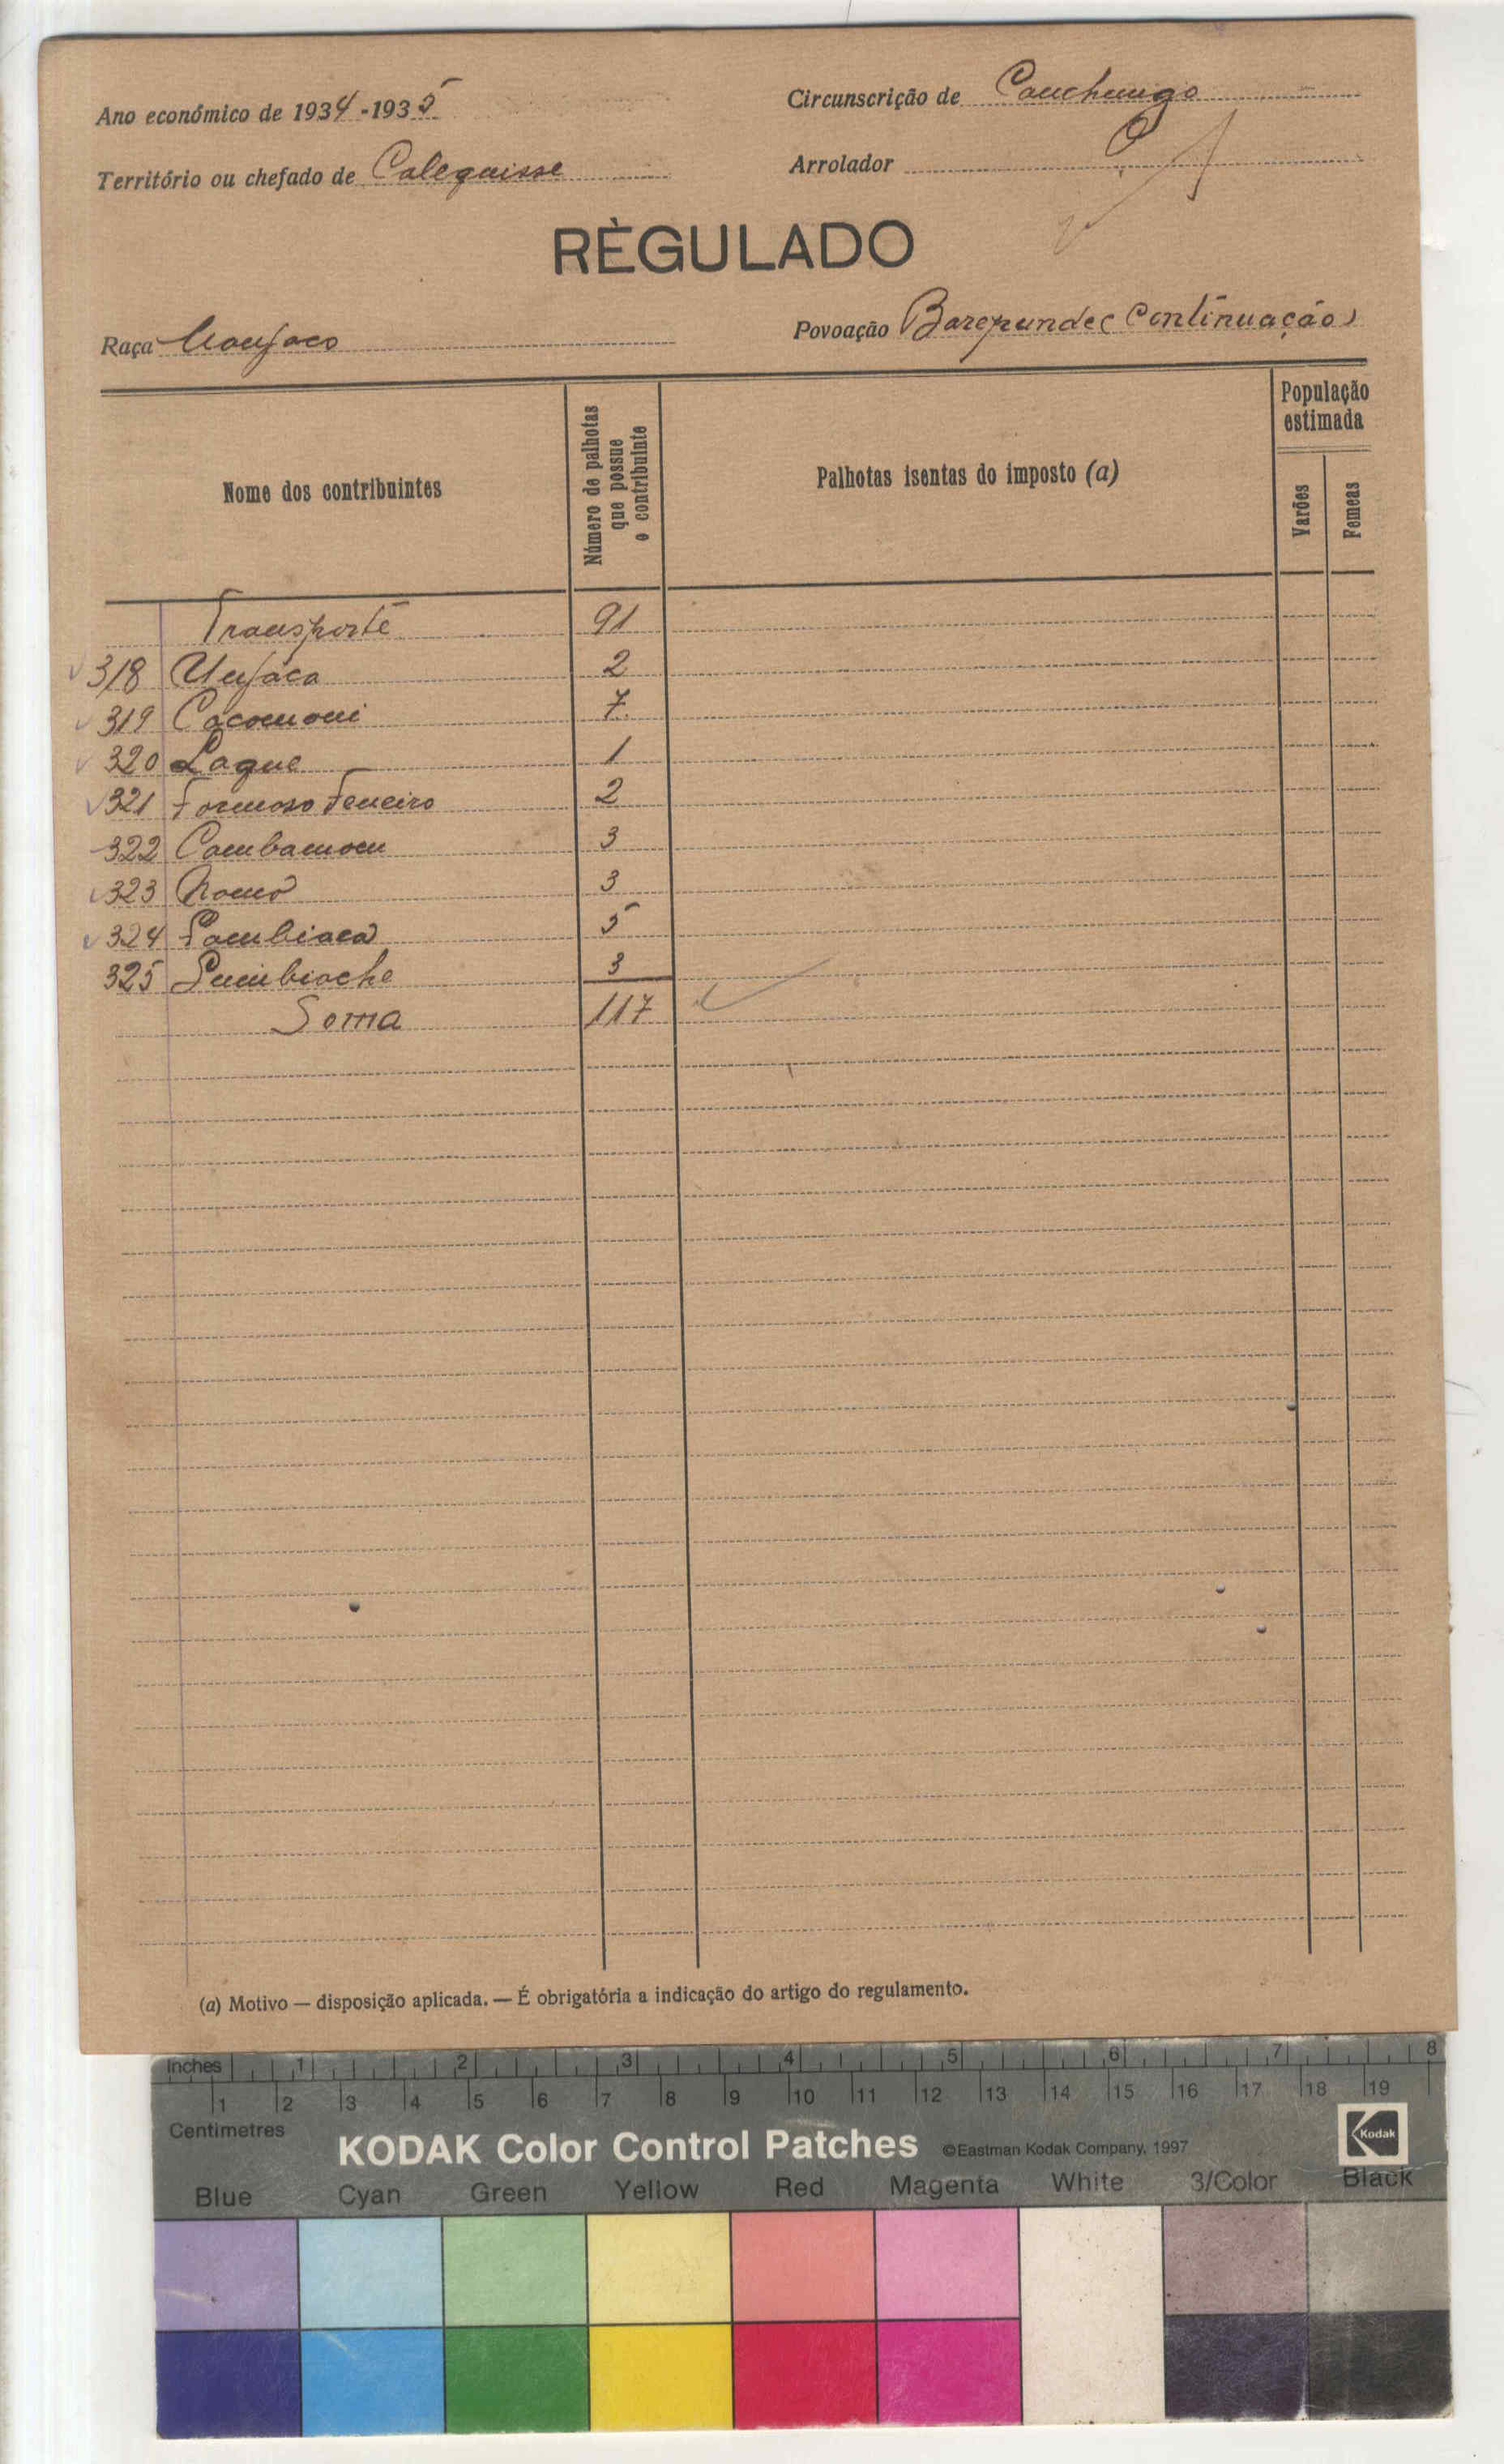 Ano económico de 1934-1935
Circunscrição de Canchungo
Território ou chefado de Calequisse
Arrolador
RÈGULADO
Raça Manjaco
Povoação Barepunde (Continuação)
Nome dos contribuintes
Número de palhotas que possue o contribuinte
Palhotas isentas do imposto (a)
População estimada
Varões
Femeas
Transporte 91
318 Unjaca 2
319 Cacomoni 7
320 Laque 1
321 Formoso 2
322 Cambamom 3
323 3
324 5
325 3
Soma 117
(a) Motivo — disposição aplicada. — É obrigatória a indicação do artigo do regulamento.
Inches 1 2 3 4 5 6 7 8
1 2 3 4 5 6 7 8 9 10 11 12 13 14 15 16 17 18 19
Centimetres
KODAK Color Control Patches ©Eastman Kodak Company, 1997 Kodak
Blue Cyan Green Yellow Red Magenta White 3/Color Black